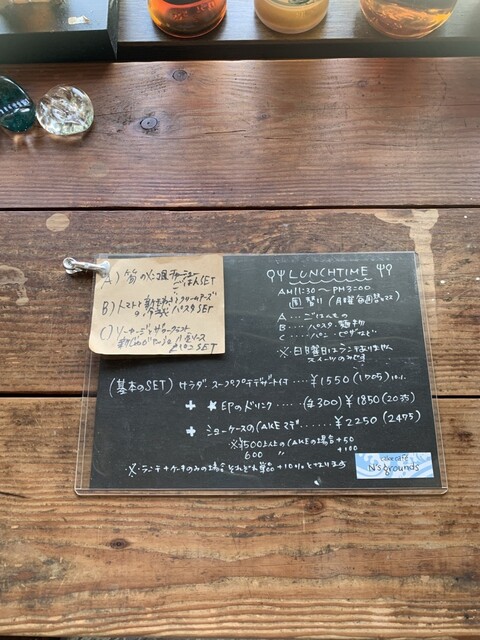 A) 筍の
ごはんSET
B) トマトと クリームチーズ
の冷製 パスタSET
C) ソーセージとザワークラウト
パンSET
LUNCHTIME
AM11:30〜PM3:00
週替り(月曜
A・・・ごはんもの
B・・・パスタ・麺物
C・・・パン・ピザなど
※日曜日はランチはありません
スイーツのみです
(基本のSET) サラダ・スープ・プチデザート付・・・¥1550 (1705)
+ ★EPのドリンク・・・(+300) ¥1850 (2035)
+ ショーケースのCAKEマデ・・・・¥2250 (2475)
※¥500以上のCAKEの場合+50
600 〃 +100
※ランチ+ケーキのみの場合 +10%となります
cake cafe
N's grounds